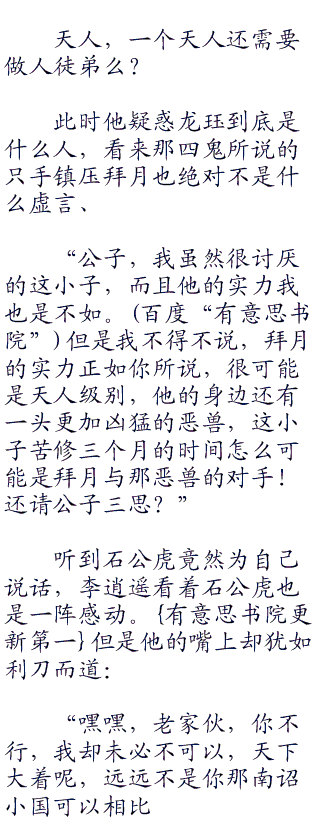 天人，一个天人还需要
做人徒弟么？
此时他疑惑龙珏到底是
什么人，看来那四鬼所说的
只手镇压拜月也绝对不是什
么虚言、
“公子，我虽然很讨厌
的这小子，而且他的实力我
也是不如。(百度“有意思书
院”)但是我不得不说，拜月
的实力正如你所说，很可能
是天人级别，他的身边还有
一头更加凶猛的恶兽，这小
子苦修三个月的时间怎么可
能是拜月与那恶兽的对手！
还请公子三思？”
听到石公虎竟然为自己
说话，李逍遥看着石公虎也
是一阵感动。{有意思书院更
新第一}但是他的嘴上却犹如
利刀而道：
“嘿嘿，老家伙，你不
行，我却未必不可以，天下
大着呢，远远不是你那南诏
小国可以相比